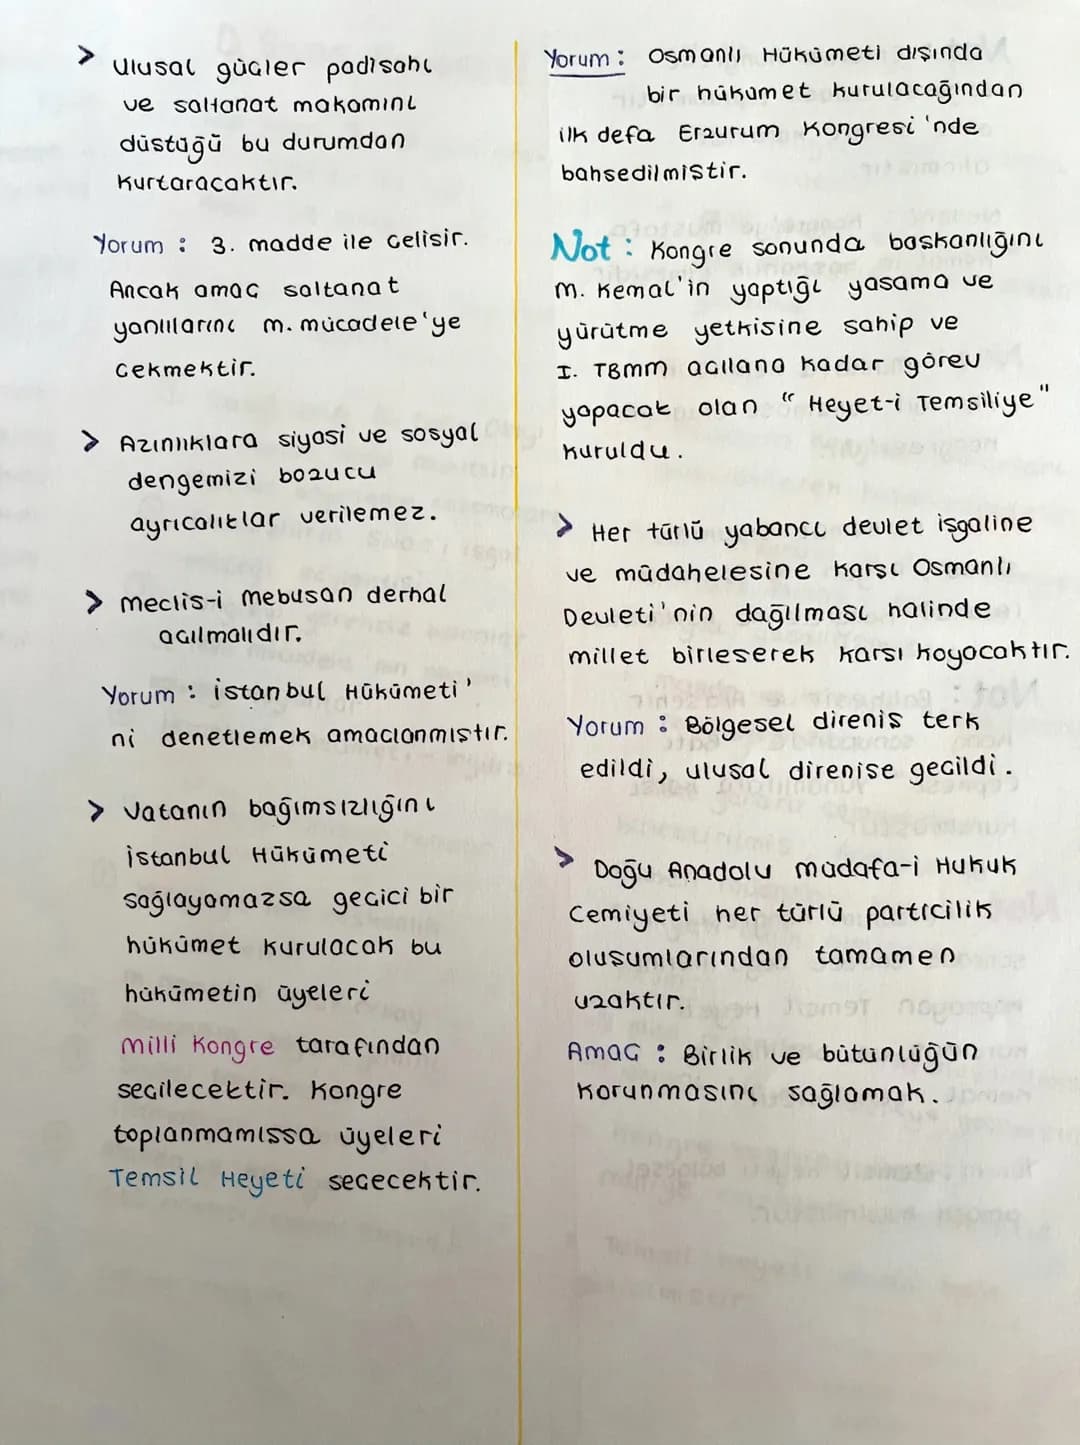 > Ulusal güçler padişahı
ve saltanat makamını
düştüğü bu durumdan
kurtaracaktır.
Yorum : 3. madde ile çelişir.
Ancak amaç saltanat
yanlılarını m. mücadele'ye
çekmektir.
> Azınlıklara siyasi ve sosyal
dengemizi bozucu
ayrıcalıklar verilemez.
> meclis-i mebusan derhal
açılmalıdır.
Yorum : İstanbul Hükümeti'
ni denetlemek amaçlanmıştır.
> Vatanın bağımsızlığını
İstanbul Hükümeti
sağlayamazsa geçici bir
hükümet kurulacak bu
hükümetin üyeleri
milli kongre tarafından
seçilecektir. Kongre
toplanmamışsa üyeleri
Temsil Heyeti seçecektir.
Yorum : Osmanlı Hükümeti dışında
bir hükümet kurulacağından
ilk defa Erzurum Kongresi'nde
bahsedilmiştir.
Not : Kongre sonunda başkanlığını
M. Kemal'in yaptığı yasama ve
yürütme yetkisine sahip ve
I. TBMM açılana kadar görev
yapacak olan "Heyet-i Temsiliye"
kuruldu.
> Her türlü yabancı devlet işgaline
ve müdahelesine karşı Osmanlı
Devleti'nin dağılması halinde
millet birleşerek karşı koyacaktır.
Yorum : Bölgesel direniş terk
edildi, ulusal direnişe geçildi.
> Doğu Anadolu müdafa-i Hukuk
Cemiyeti her türlü particilik
oluşumlarından tamamen
uzaktır.
Amaç : Birlik ve bütünlüğün
korunmasını sağlamak.